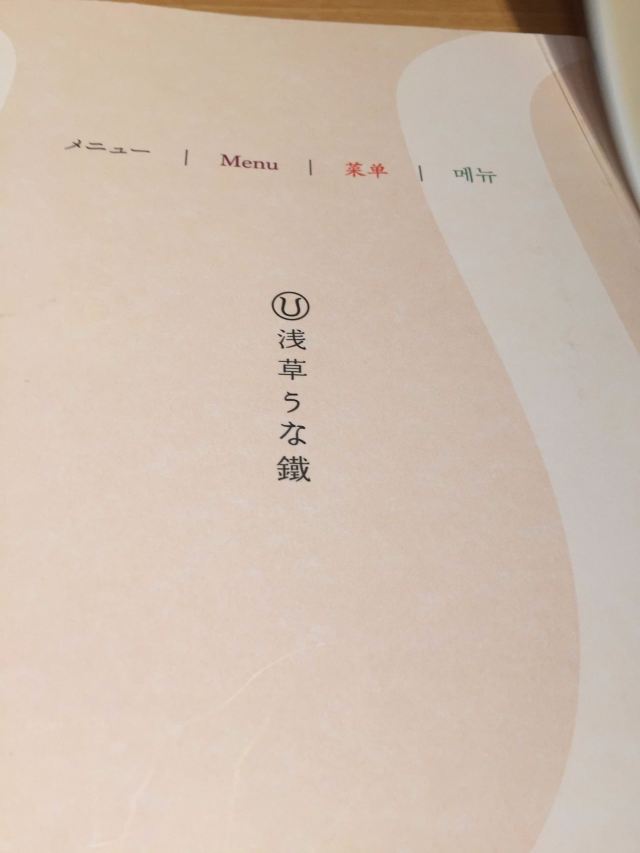 メニュー | Menu | 菜单 | 메뉴
U
浅草うな鐵